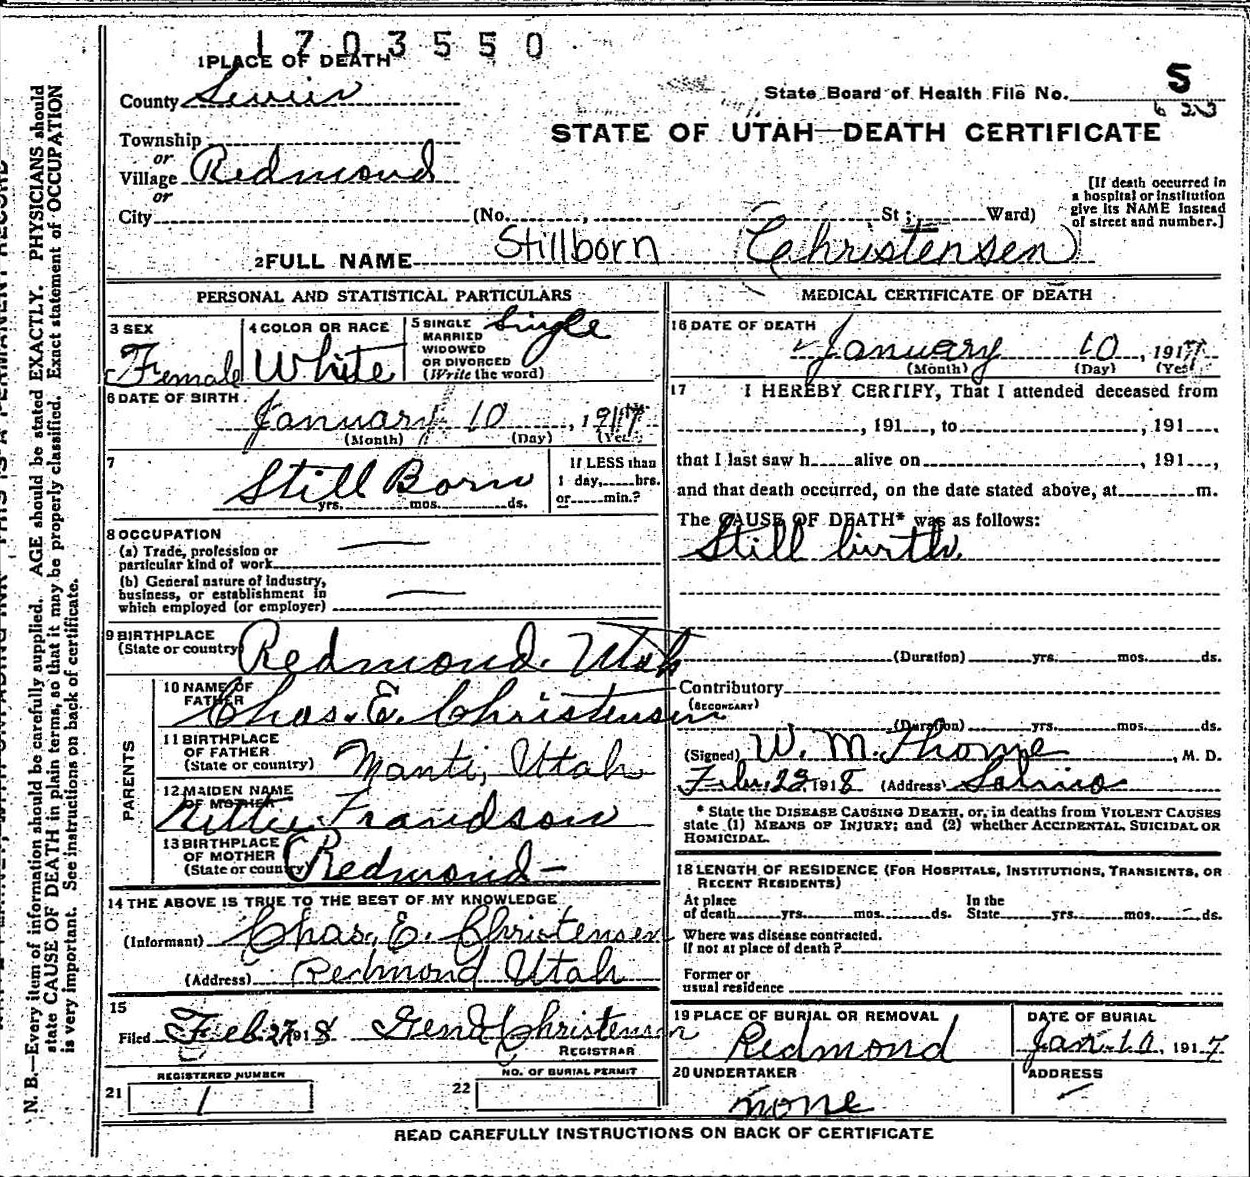 1703550
1 PLACE OF DEATH
County Sevier
State Board of Health File No. S
623
STATE OF UTAH—DEATH CERTIFICATE
Township
or
Village Redmond
or
City (No. , St.; Ward)
[If death occurred in
a hospital or institution
give its NAME instead
of street and number.]
2 FULL NAME Stillborn (Christensen)
PERSONAL AND STATISTICAL PARTICULARS
3 SEX
Female
4 COLOR OR RACE
White
5 SINGLE
MARRIED
WIDOWED
OR DIVORCED
(Write the word)
Single
6 DATE OF BIRTH
January 10, 1917
(Month) (Day) (Year)
7
Still Born
yrs. mos. ds.
If LESS than
1 day, hrs.
or min.?
8 OCCUPATION
(a) Trade, profession or
particular kind of work —
(b) General nature of industry,
business, or establishment in
which employed (or employer) —
9 BIRTHPLACE
(State or country) Redmond. Utah
PARENTS
10 NAME OF
FATHER Chas. E. Christensen
11 BIRTHPLACE
OF FATHER
(State or country) Manti, Utah
12 MAIDEN NAME
OF MOTHER Frandson
13 BIRTHPLACE
OF MOTHER
(State or country) Redmond —
14 THE ABOVE IS TRUE TO THE BEST OF MY KNOWLEDGE
(Informant) Chas. E. Christensen
(Address) Redmond Utah
15
Filed Feb. 27 1918 Christensen
REGISTRAR
REGISTERED NUMBER
21 1
NO. OF BURIAL PERMIT
22
MEDICAL CERTIFICATE OF DEATH
16 DATE OF DEATH
January 10, 1917
(Month) (Day) (Year)
17 I HEREBY CERTIFY, That I attended deceased from
, 191 , to , 191 ,
that I last saw h alive on , 191 ,
and that death occurred, on the date stated above, at m.
The CAUSE OF DEATH* was as follows:
Still birth.
(Duration) yrs. mos. ds.
Contributory
(SECONDARY)
(Duration) yrs. mos. ds.
(Signed) W. M. , M. D.
Feb. 23 1918 (Address) Salina
* State the DISEASE CAUSING DEATH, or, in deaths from VIOLENT CAUSES
state (1) MEANS OF INJURY; and (2) whether ACCIDENTAL, SUICIDAL OR
HOMICIDAL.
18 LENGTH OF RESIDENCE (FOR HOSPITALS, INSTITUTIONS, TRANSIENTS, OR
RECENT RESIDENTS)
At place
of death yrs. mos. ds.
In the
State yrs. mos. ds.
Where was disease contracted.
If not at place of death?
Former or
usual residence
19 PLACE OF BURIAL OR REMOVAL
Redmond
DATE OF BURIAL
Jan. 10, 1917
20 UNDERTAKER
none
ADDRESS
READ CAREFULLY INSTRUCTIONS ON BACK OF CERTIFICATE
N. B.—Every item of information should be carefully supplied. AGE should be stated EXACTLY. PHYSICIANS should
state CAUSE OF DEATH in plain terms, so that it may be properly classified. Exact statement of OCCUPATION
is very important. See instructions on back of certificate.